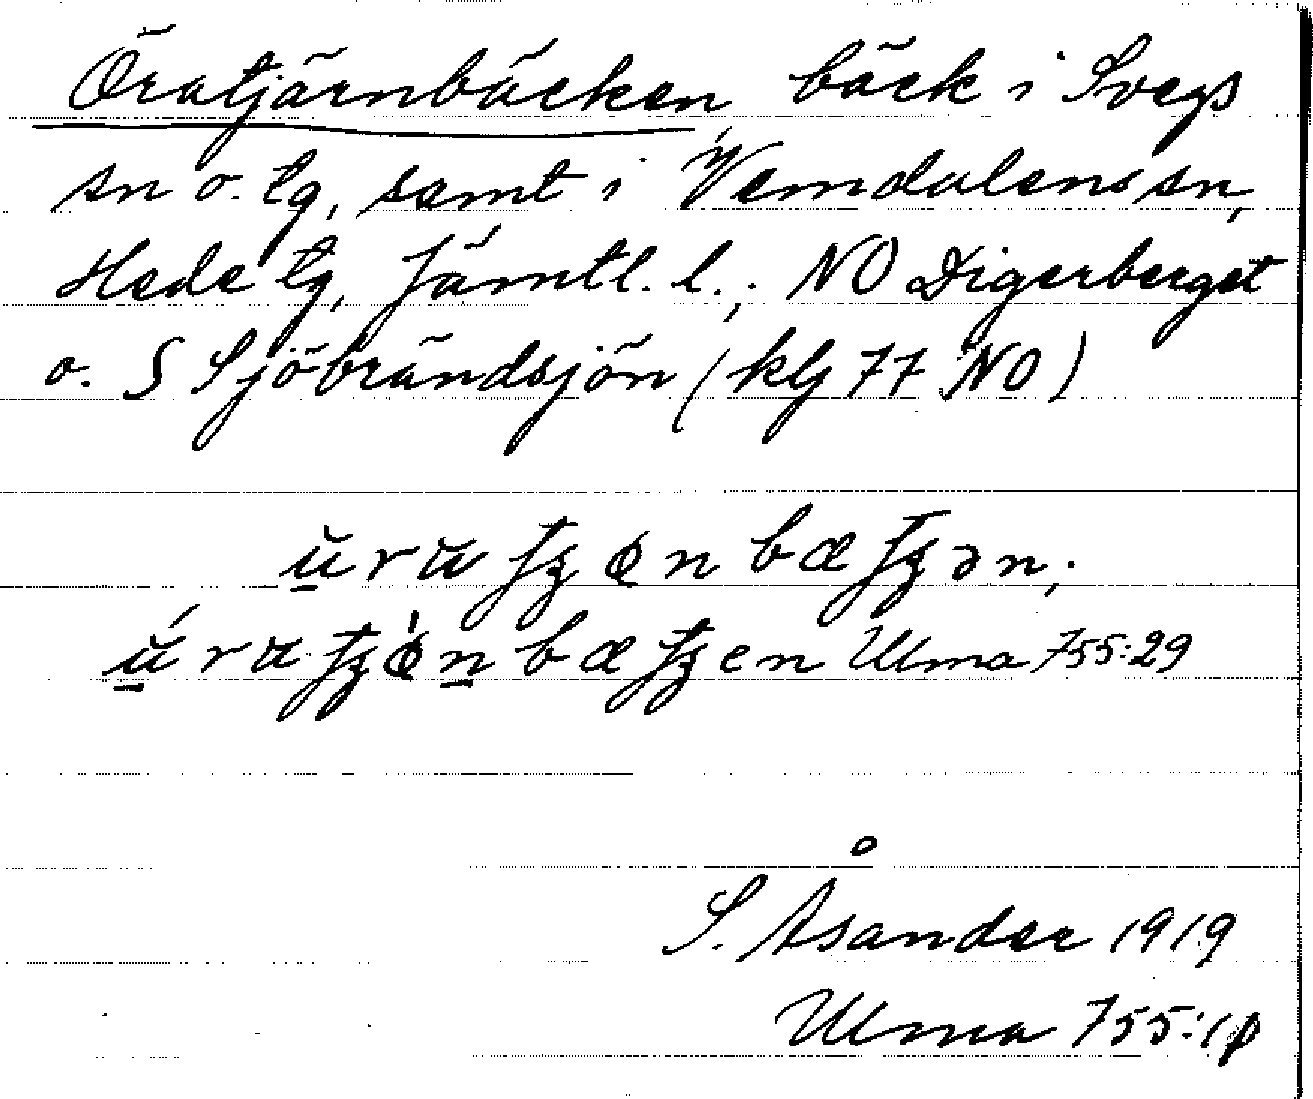 Öratjärnbäcken, bäck i Svegs
sn o. tg, samt i Vemdalens sn,
Hede tg, Jämtl. l.; NO Digerberget
o. S Sjöbrändsjön (kbl 77 NO)
Ulma 755:29
S. Åsander 1919
Ulma 755:1